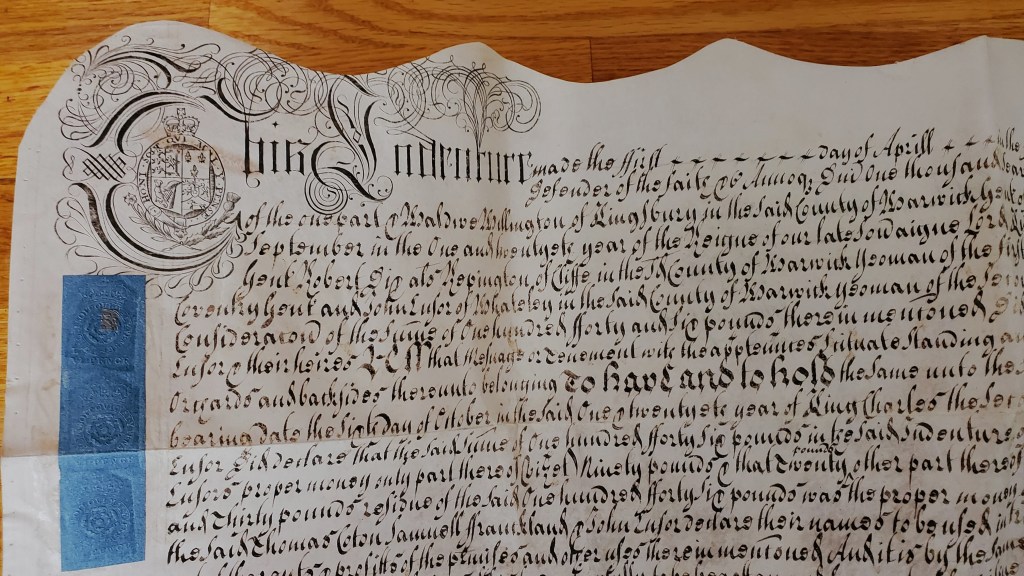 This Indenture made the ffirst day of Aprill in the
Defender of the faith &c Annoq Dni One thousand
of the one part & Waldive Willington of Kingsbury in the said County of Warwick Gent
September in the One and twentyeth year of the Reigne of our late Sovdaigne Lord
Gent Robert Dix als Repington of Cliffe in the sd County of Warwick Yeoman of the
Coventry Gent and John Luson of Whateley in the said County of Warwick yeoman of the
Consideracon of the Sume of One hundred fforty and Six pounds therein mentioned Did
Luson & their heires All that Messuage or Tenement with the apptennces Situate Standing
Orchards and backsides thereunto belonging To have and to hold the same unto the
bearing date the Sixth Day of October in the said One & twentyeth year of King Charles the
Luson Did declare that the said Sume of One hundred fforty Six pounds in the said Indenture
Lusons proper money only part thereof (vizet) Ninety pounds & that Twenty pounds other part thereof
and Thirty pounds residue of the said One hundred fforty Six pounds was the proper money
the said Thomas Coton Samuell ffranckland & John Luson declare their names to be used in
& profitts of the pmises and other uses therein mentioned And it is by the same